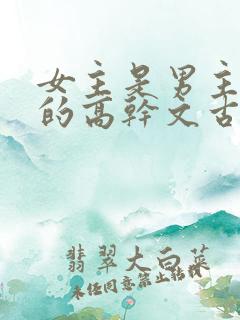 女主是男主
的高幹文古
翡翠大白菜
未任同意禁止转载